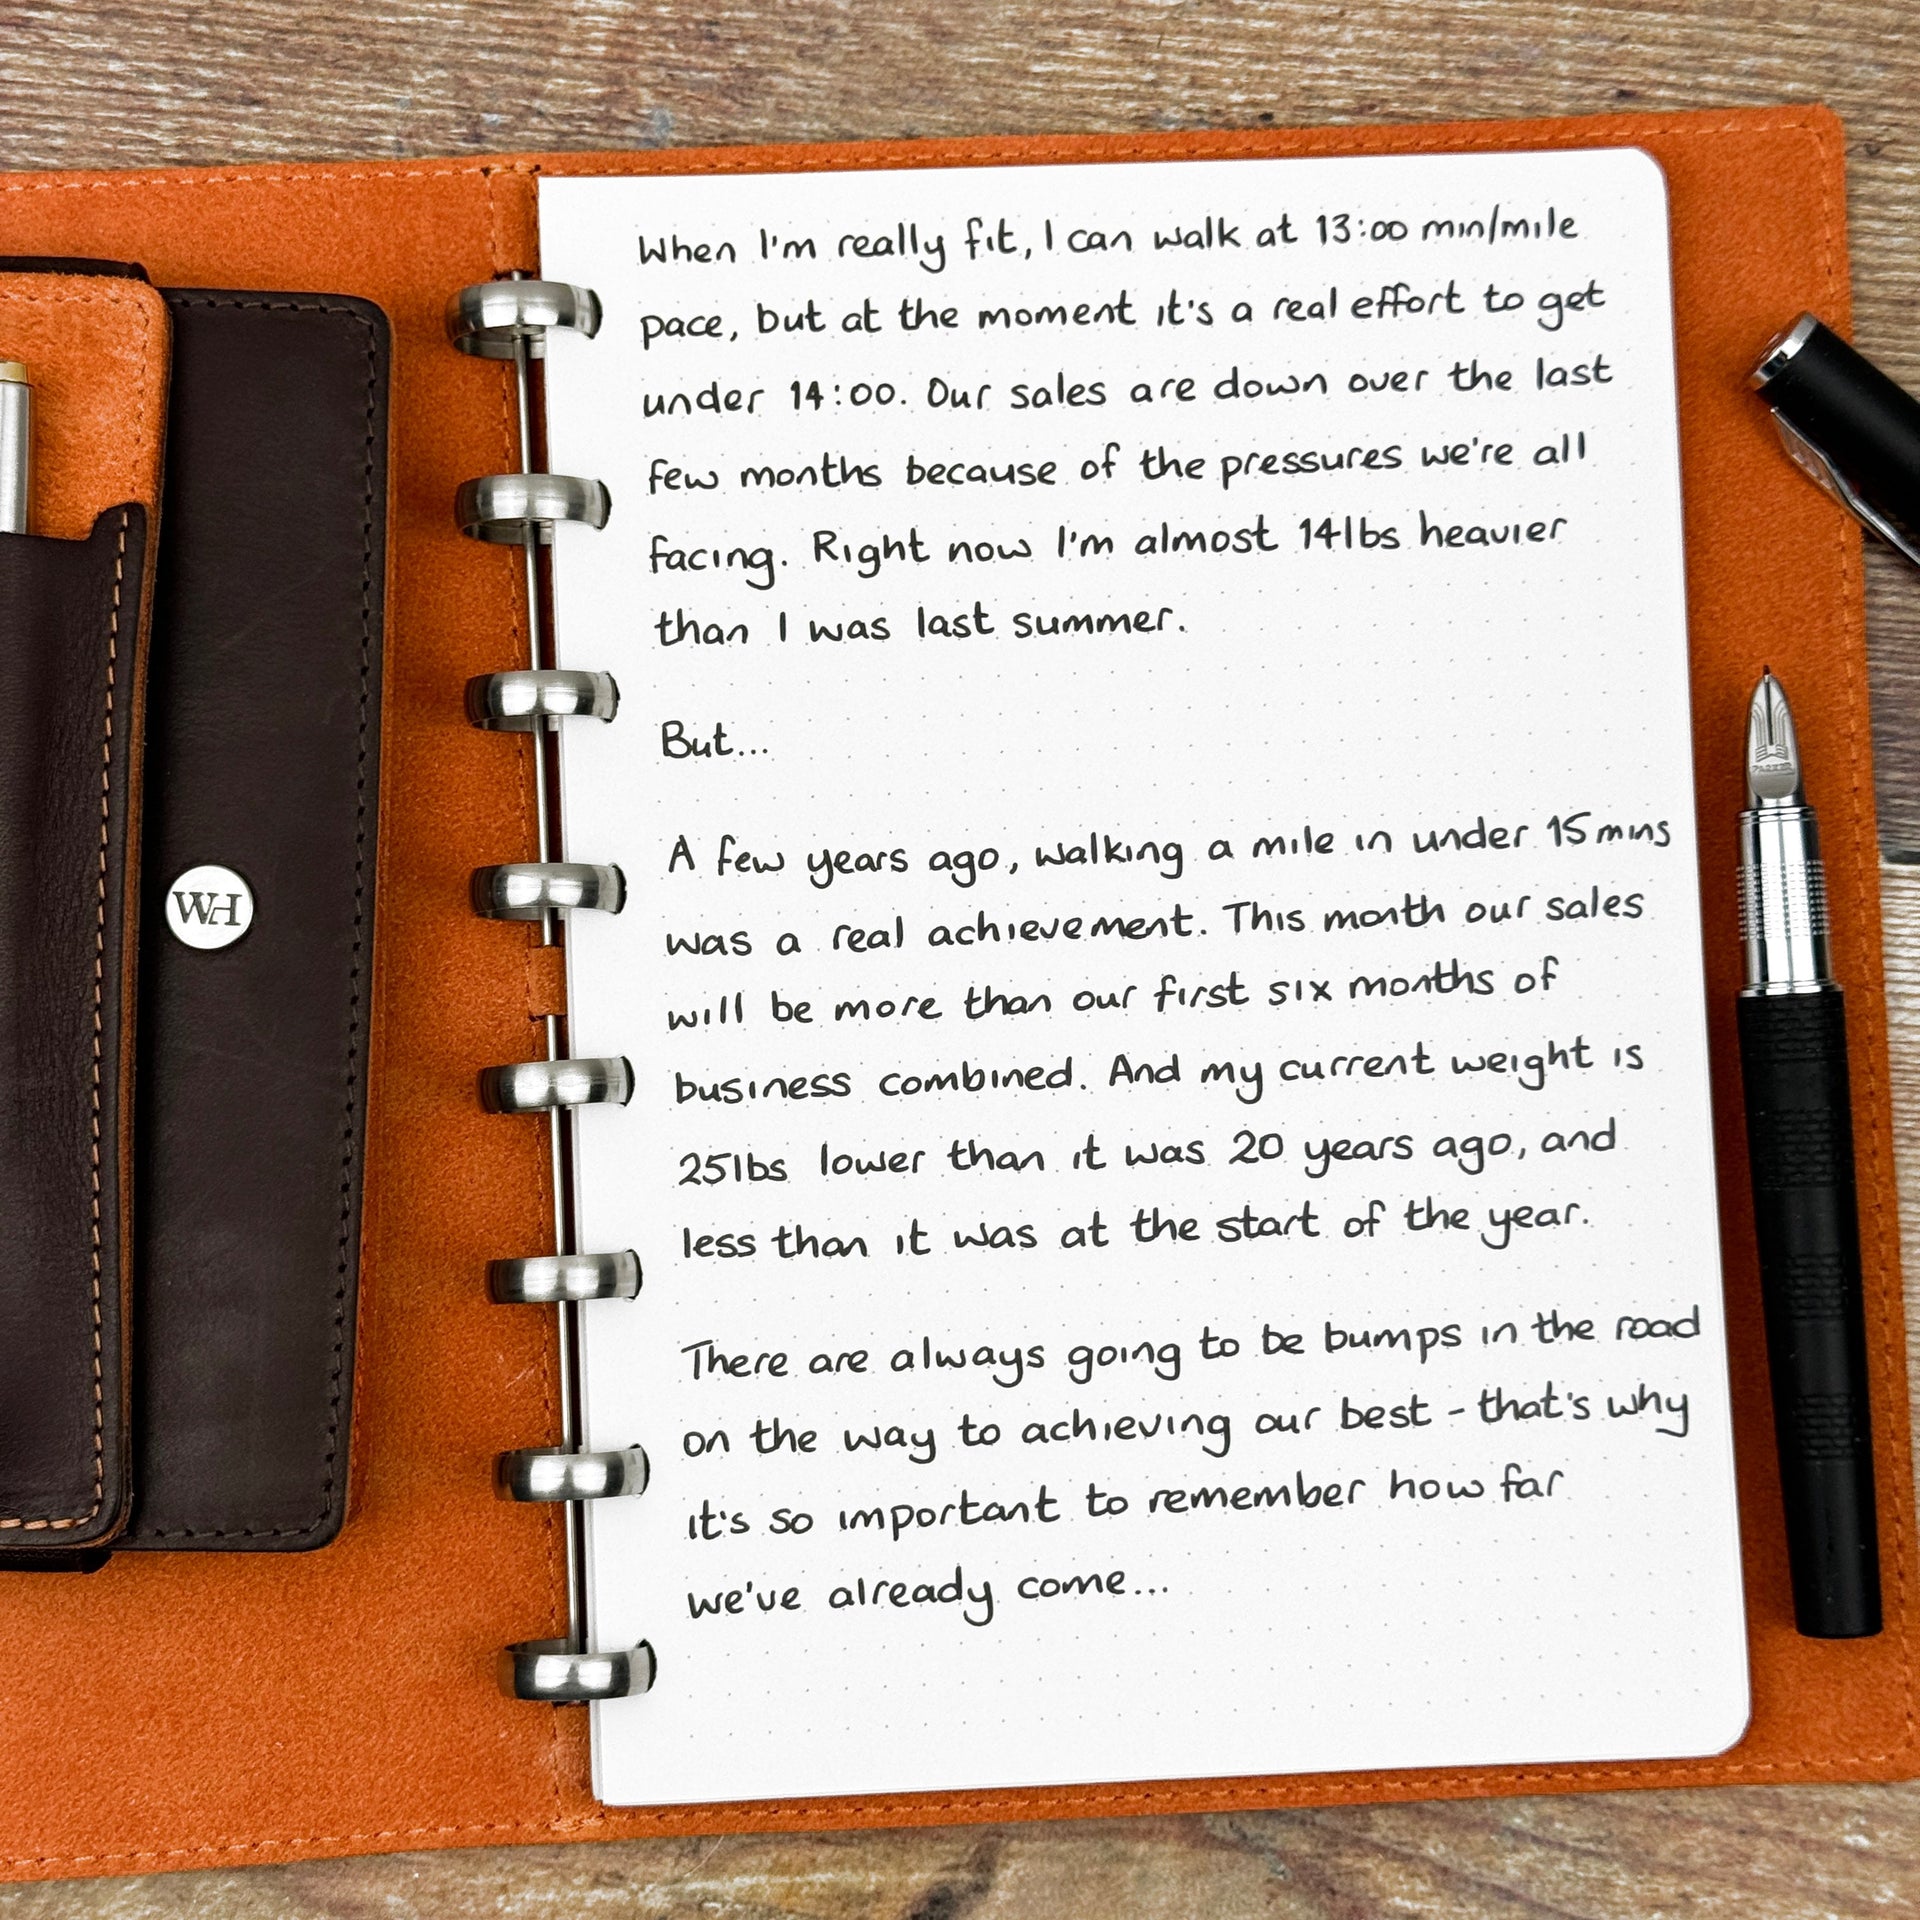 When I'm really fit, I can walk at 13:00 min/mile
pace, but at the moment it's a real effort to get
under 14:00. Our sales are down over the last
few months because of the pressures we're all
facing. Right now I'm almost 14lbs heavier
than I was last summer.
But...
A few years ago, walking a mile in under 15mins
was a real achievement. This month our sales
will be more than our first six months of
business combined. And my current weight is
25lbs lower than it was 20 years ago, and
less than it was at the start of the year.
There are always going to be bumps in the road
on the way to achieving our best - that's why
it's so important to remember how far
we've already come...
WH
PARKER